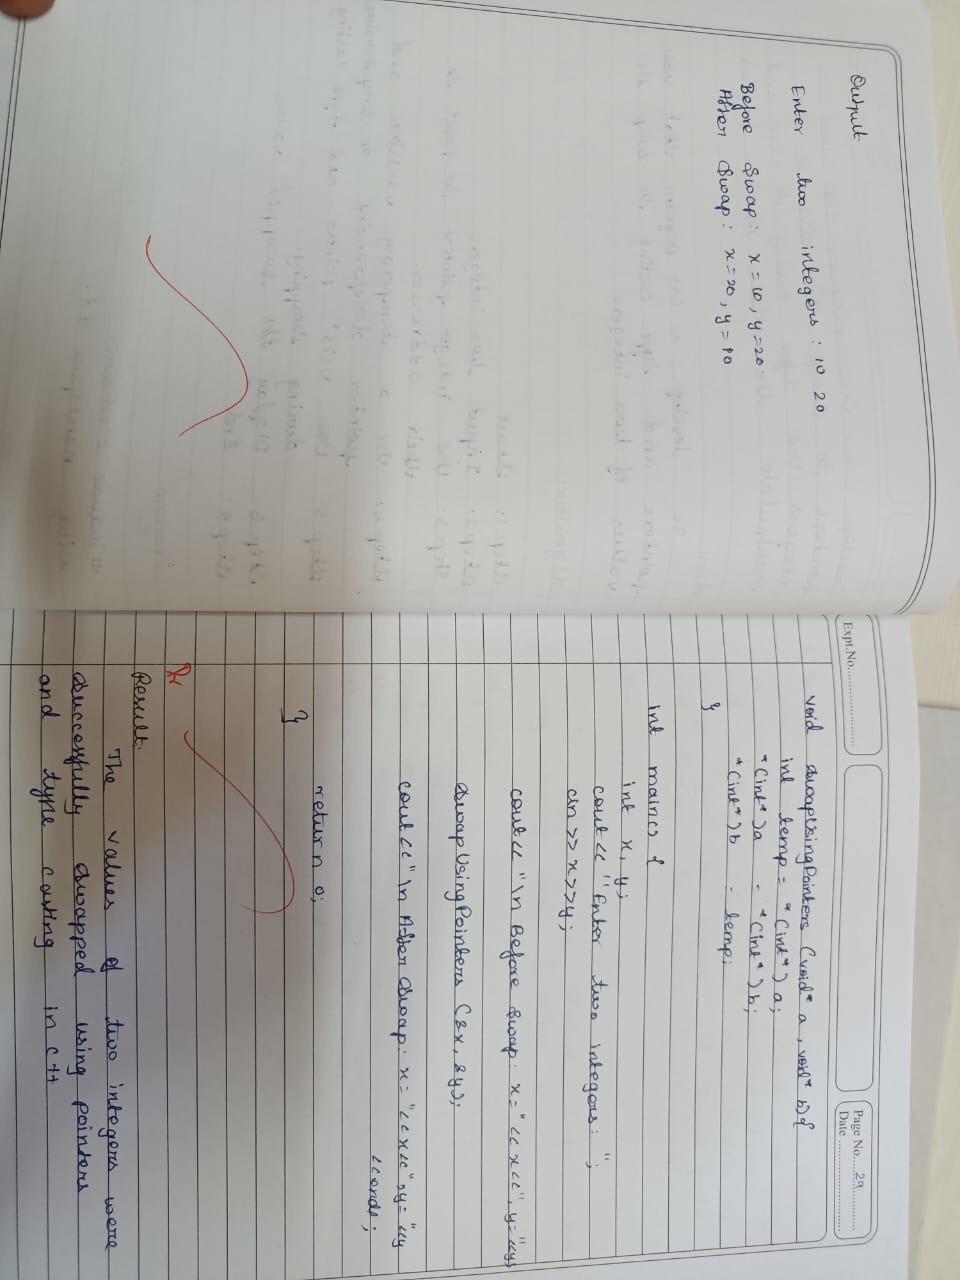 Output
Enter two integers : 10 20
Before Swap: x=10, y=20
After Swap: x=20, y=10
Expt.No.
Page No. 29
Date
void swapUsingPointers (void* a, void* b){
int temp = *(int*) a;
*(int*)a = *(int*)b;
*(int*)b = temp;
}
int main() {
int x, y;
cout<< "Enter two integers: ";
cin >> x>>y;
cout<< "\n Before Swap: x=" << x <<", y=" <<y;
swapUsingPointers (&x, &y);
cout <<"\n After Swap: x= "<< x<<", y= "<<y
<<endl;
return 0;
}
Result:
The values of two integers were
successfully swapped using pointers
and type casting in C++